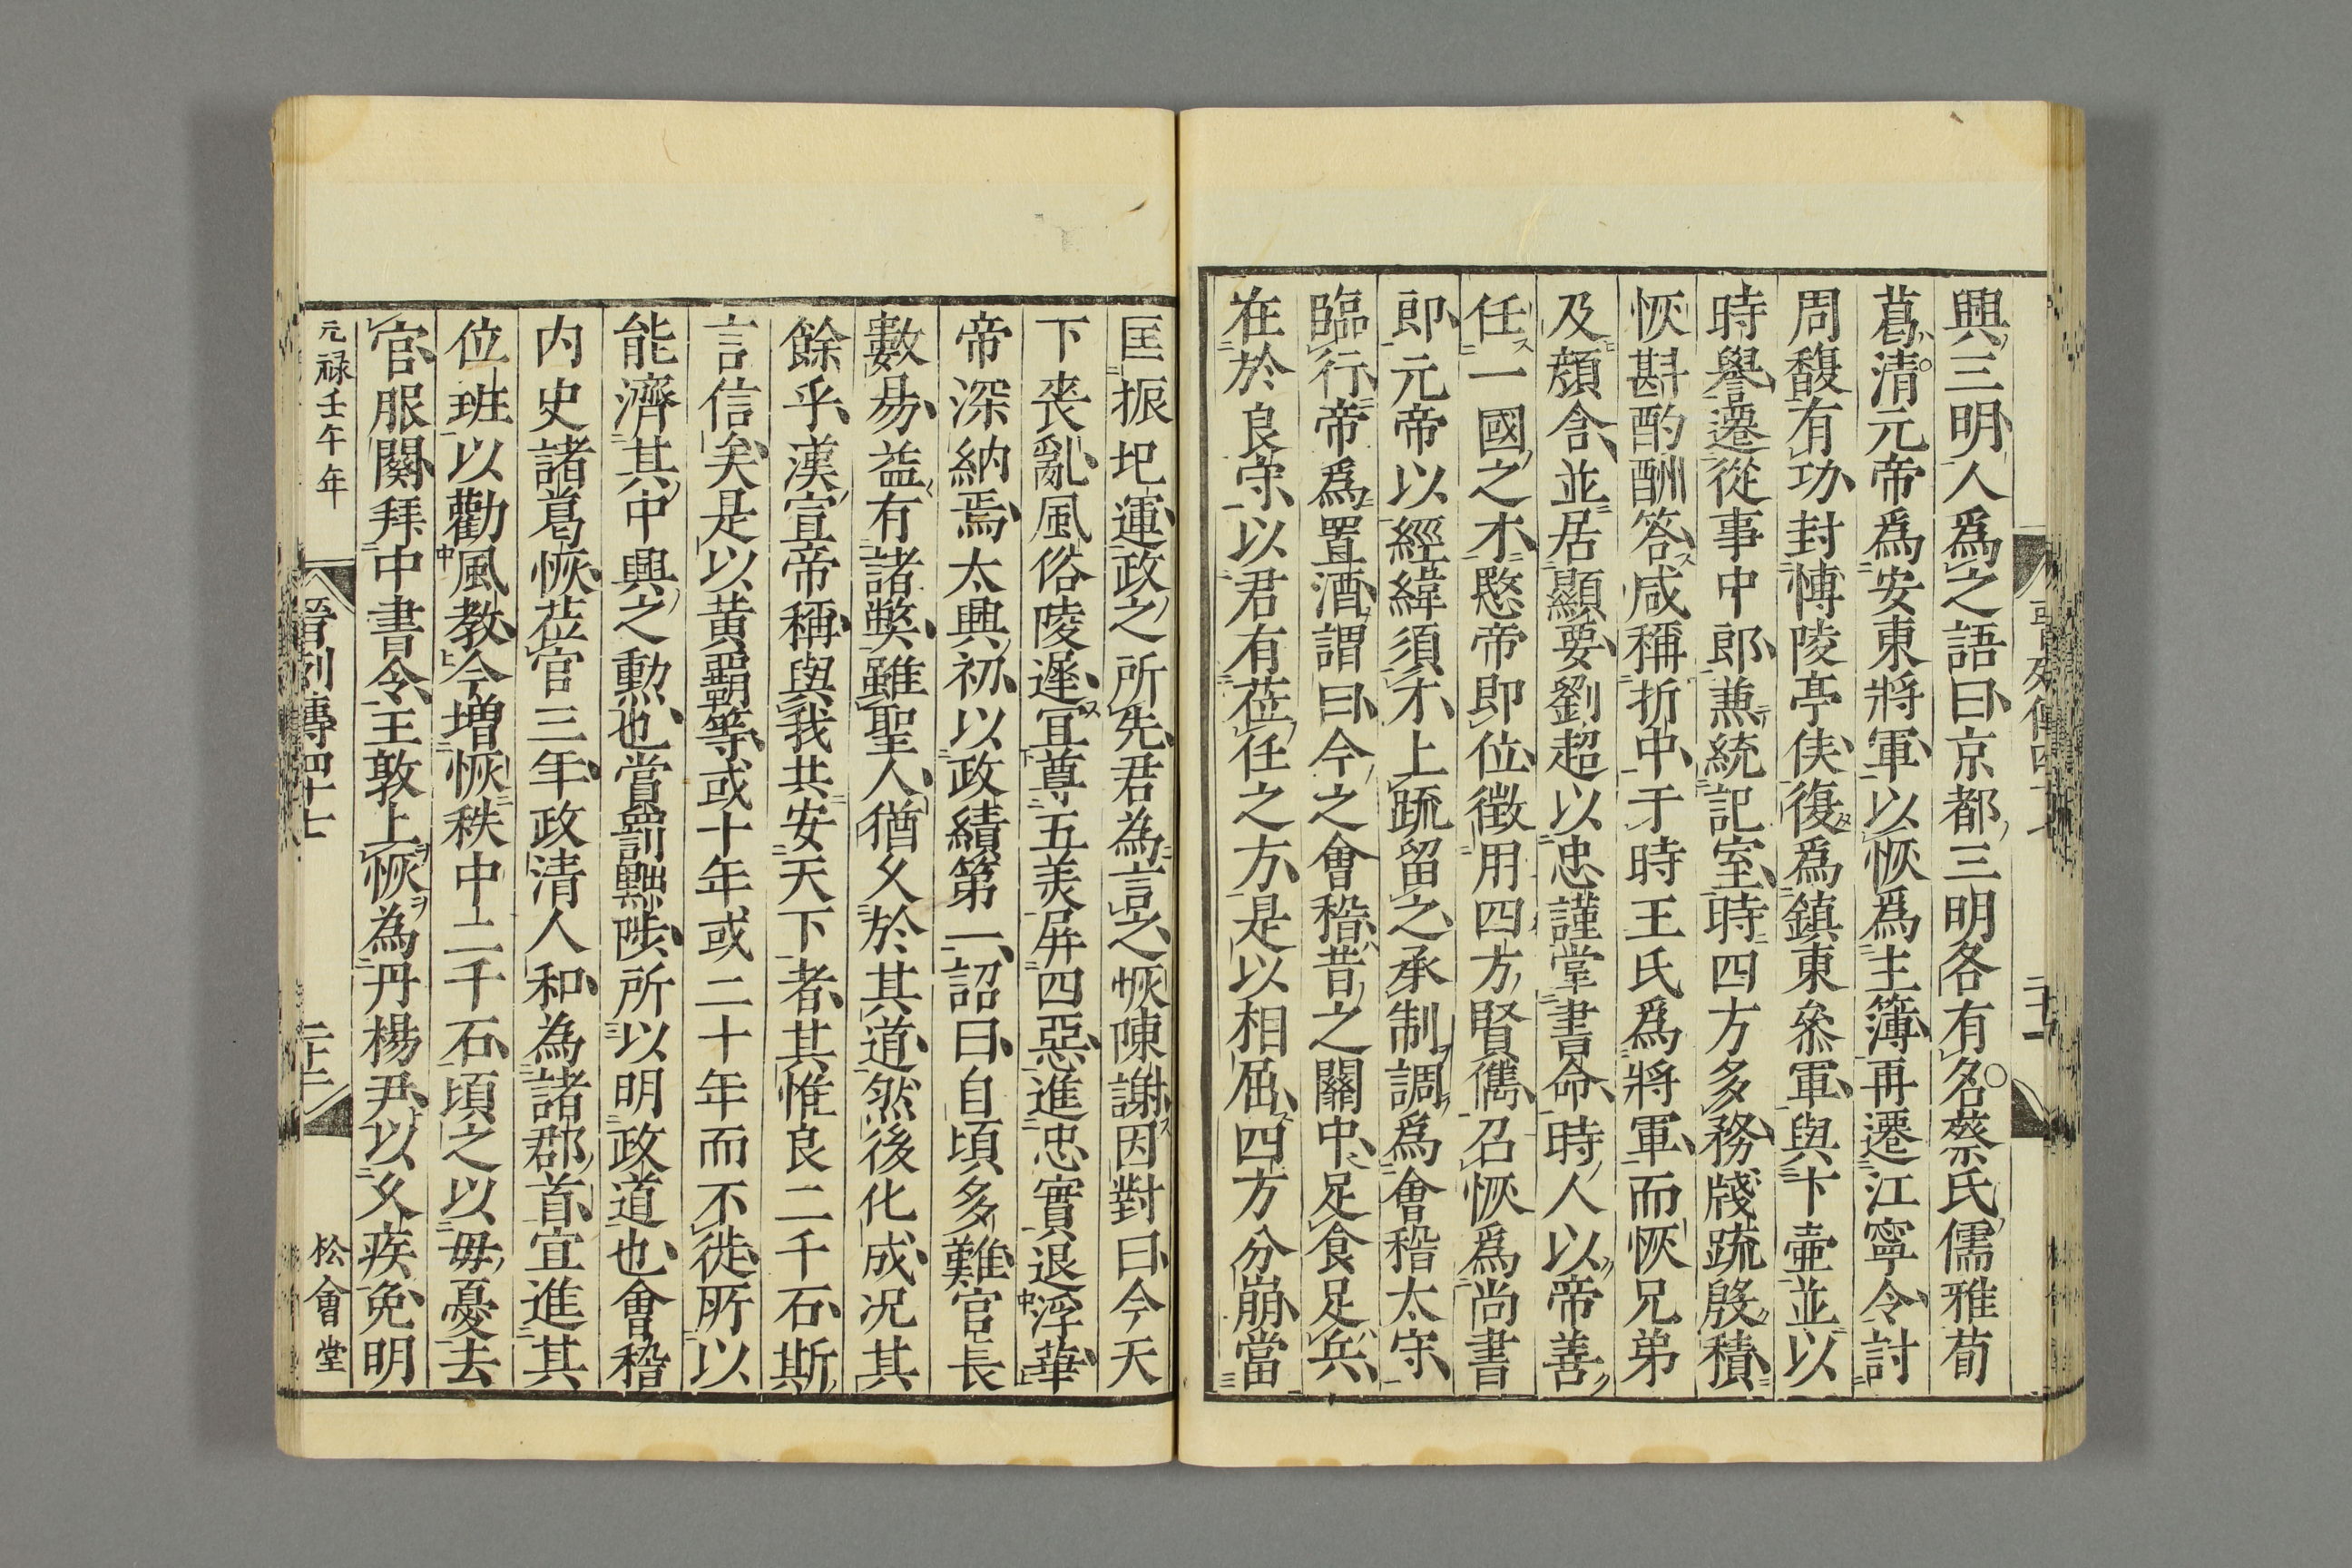 興三明人爲之語曰京都三明各有名蔡氏儒雅荀
葛清元帝爲安東將軍以恢爲主簿再遷江寧令討
周馥有功封博陵亭侯復爲鎮東叅軍與卞壷並以
時譽遷從事中郎兼統記室時四方多務牋疏殷積
恢斟酌酬答咸稱折中于時王氏爲將軍而恢兄弟
及顔含並居顯要劉超以忠謹掌書命時人以帝善
任一國之才愍帝即位徵用四方賢儁召恢爲尚書
郎元帝以經緯須才上疏留之承制調爲會稽太守
臨行帝爲置酒謂曰今之會稽昔之關中足食足兵
在於良守以君有莅任之方是以相屈四方分崩當
匡振圯運政之所先君為言之恢陳謝因對曰今天
下喪亂風俗陵遲宜尊五美屏四惡進忠實退浮華
帝深納焉太興初以政績第一詔曰自頃多難官長
數易益有諸弊雖聖人猶久於其道然後化成况其
餘乎漢宣帝稱與我共安天下者其惟良二千石斯
言信矣是以黃霸等或十年或二十年而不徙所以
能濟其中興之勳也賞罰黜陟所以明政道也會稽
内史諸葛恢莅官三年政清人和為諸郡首宜進其
位班以勸風教今増恢秩中二千石頃之以毋憂去
官服闋拜中書令王敦上恢為丹楊尹以久疾免明
元禄壬午年 晋列傳四十七 松會堂